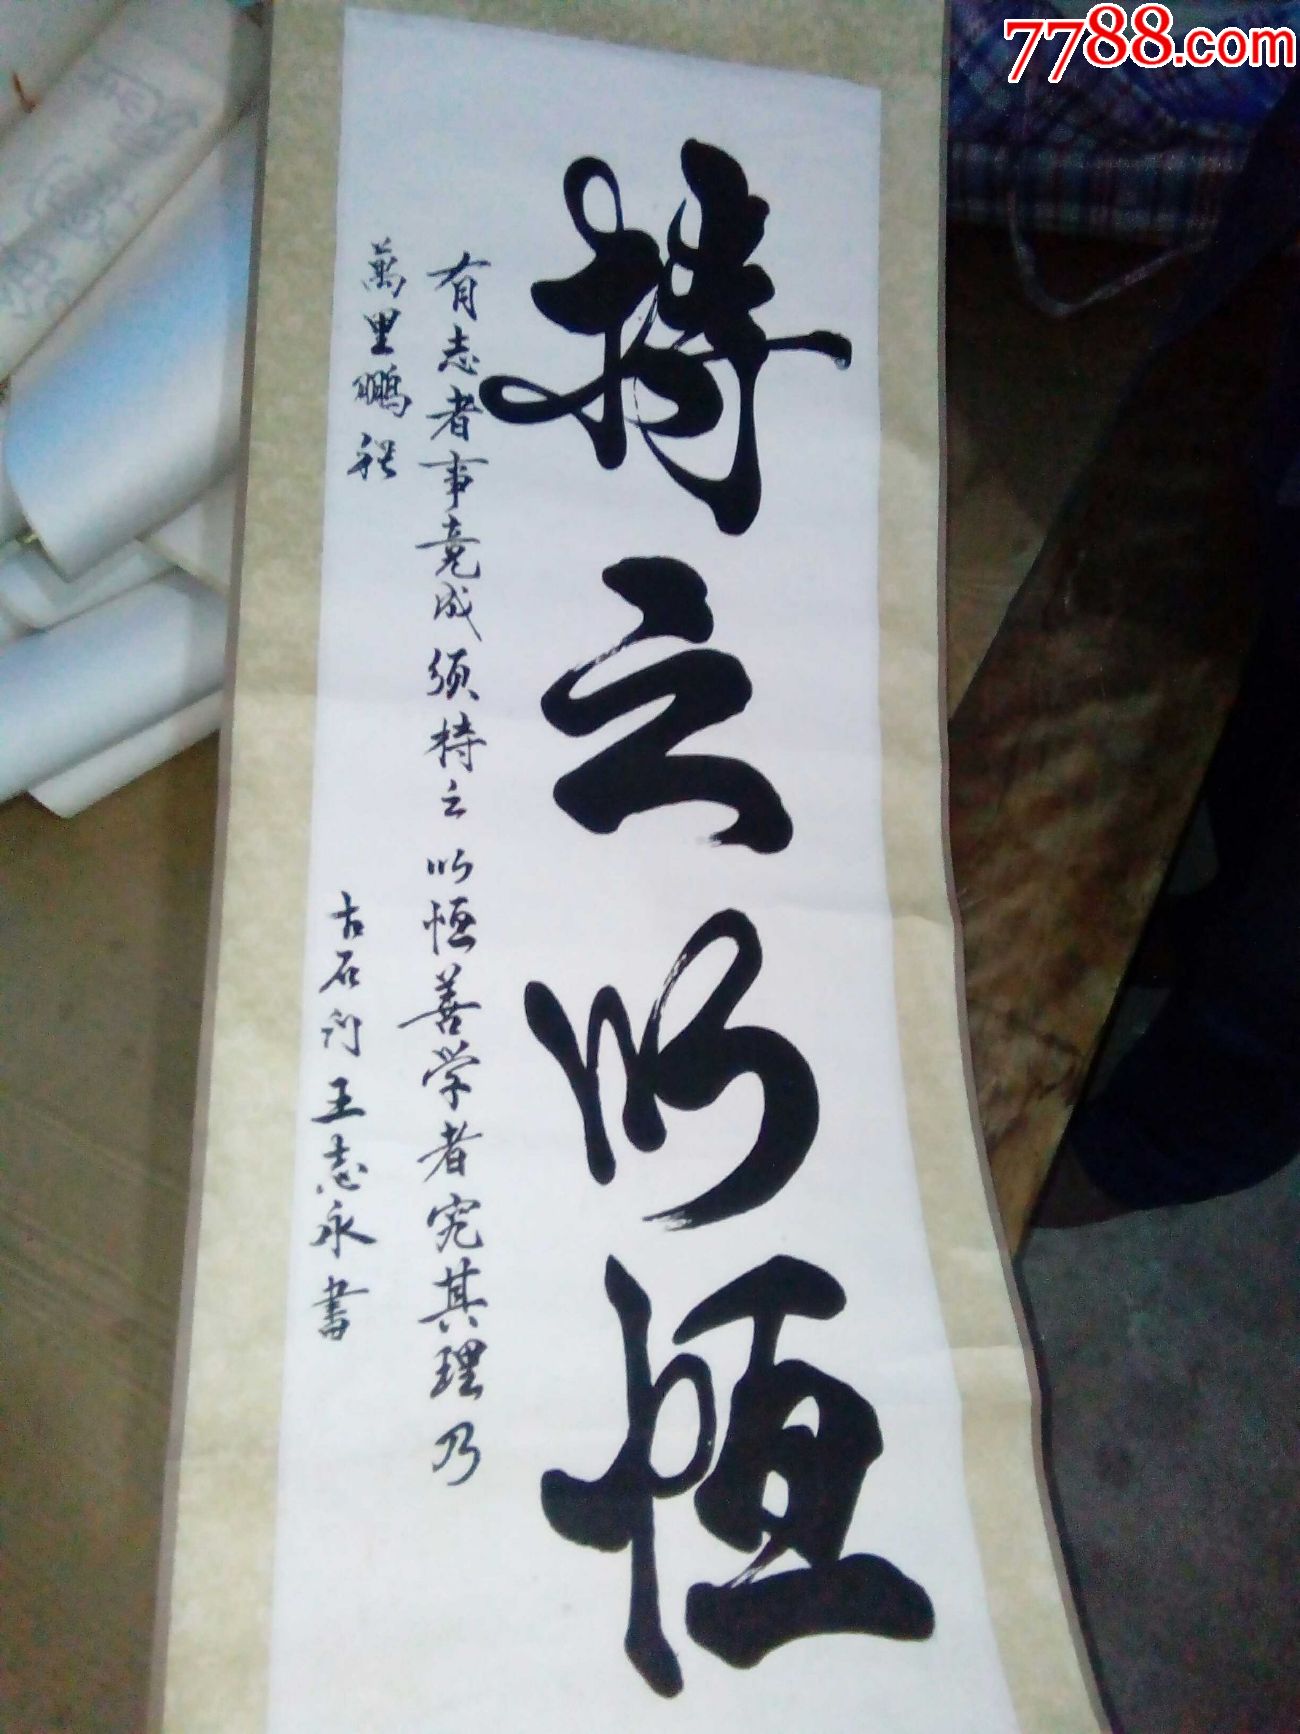 7788.com
持之以恒
有志者事竟成须持之以恒善学者究其理乃
萬里鹏程
古石门王志永書